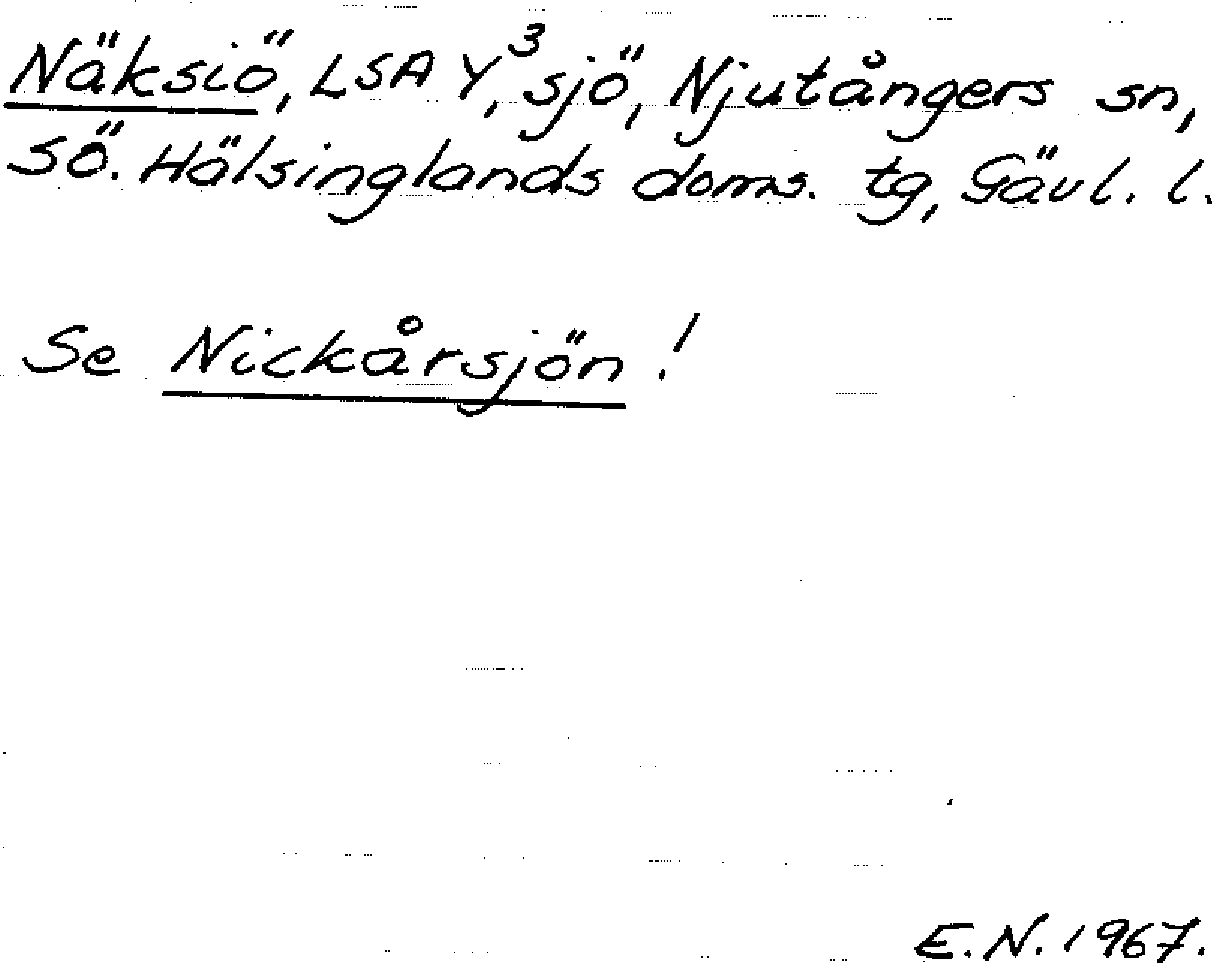 Näksiö, LSA Y³, sjö, Njutångers sn,
SÖ. Hälsinglands doms. tg, Gävl. l.
Se Nickårsjön!
E.N. 1967.